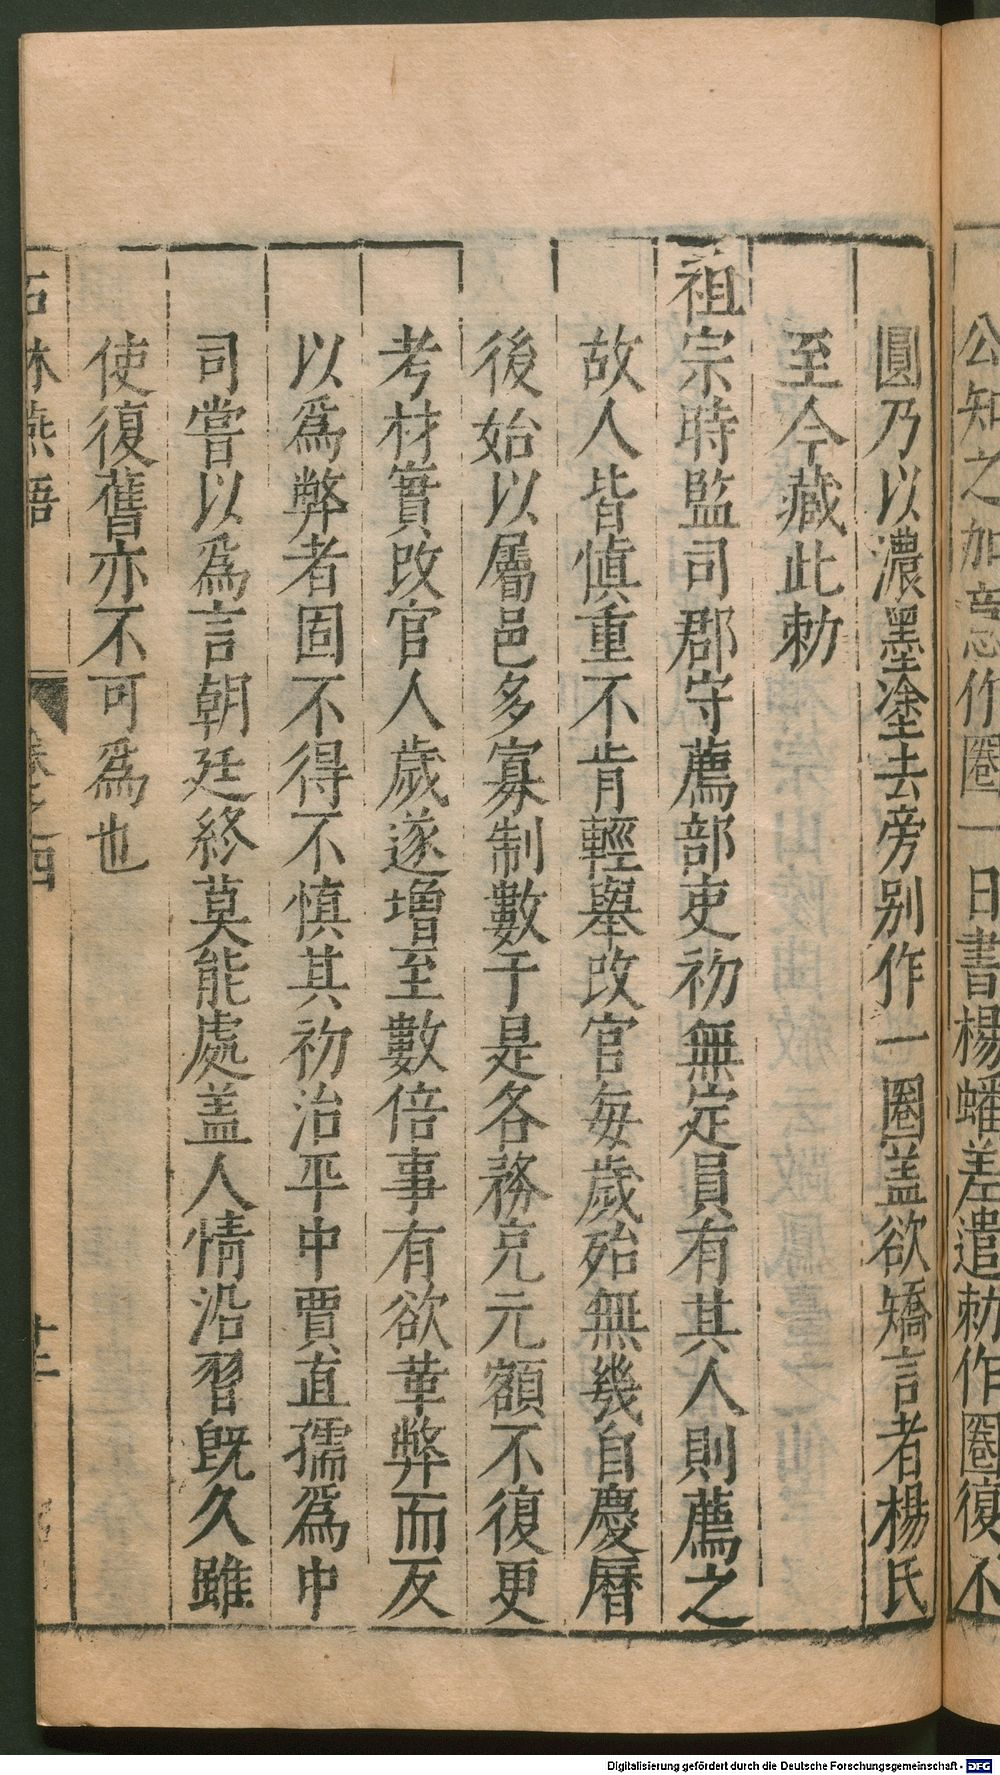 公知之加意作圈一日書楊蟠差遣勑作圈復不
圓乃以濃墨塗去旁別作一圈盖欲矯言者楊氏
至今藏此勑
祖宗時監司郡守薦部吏初無定員有其人則薦之
故人皆愼重不肯輕舉改官每歲殆無幾自慶曆
後始以屬邑多寡制數于是各務充元額不復更
考材實改官人歲遂增至數倍事有欲革弊而反
以爲弊者固不得不慎其初治平中賈直孺爲中
司嘗以爲言朝廷終莫能處盖人情沿習旣久雖
使復舊亦不可爲也
石林燕語 卷之四 十二
Digitalisierung gefördert durch die Deutsche Forschungsgemeinschaft - DFG